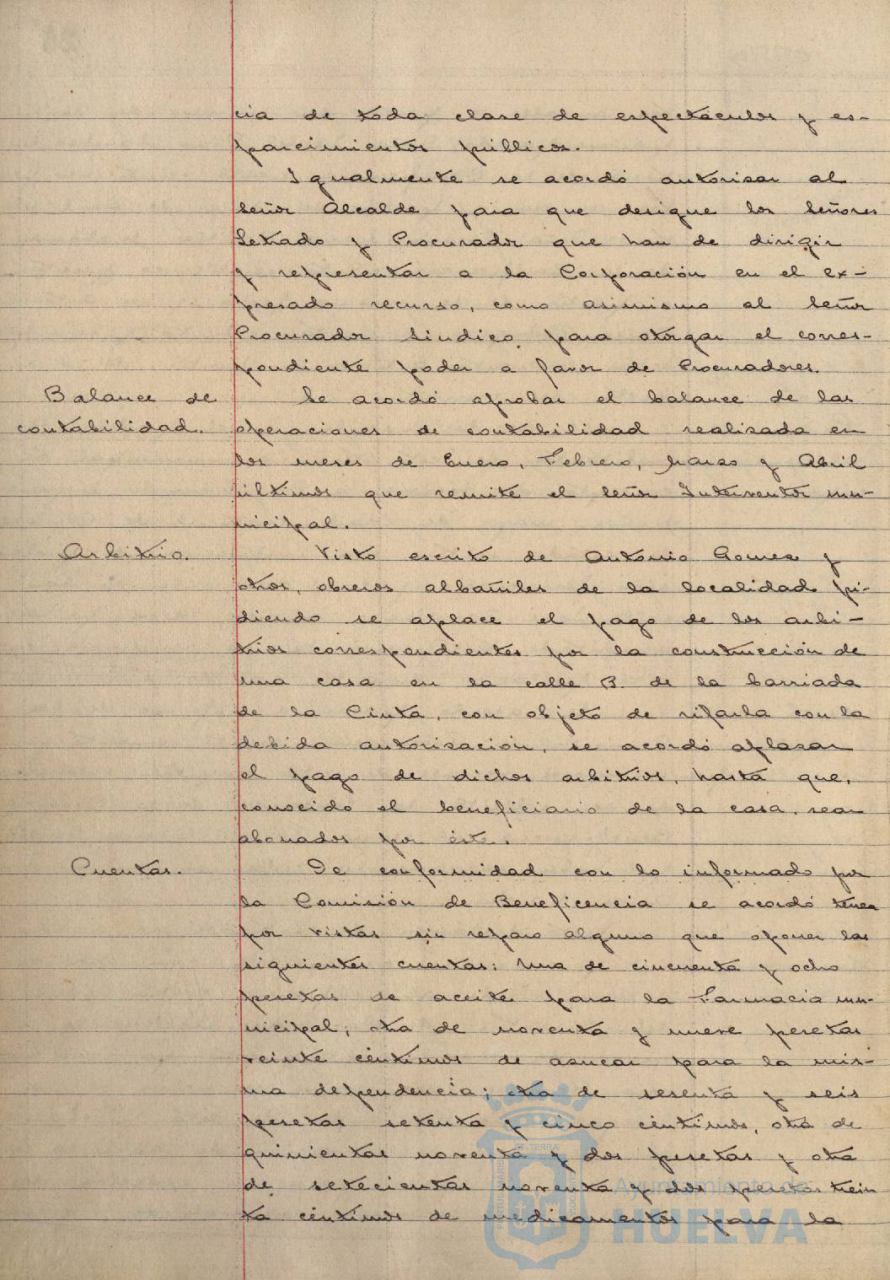 cia de toda clase de espectáculos y es-
parcimientos públicos.
Igualmente se acordó autorisar al
Señor Alcalde para que designe los Señores
Letrado y Procurador que han de dirigir
y representar a la Corporación en el ex-
presado recurso, como asimismo al Señor
Procurador Síndico, para otorgar el corres-
pondiente poder a favor de Procuradores.
Balance de
contabilidad.
Se acordó aprobar el balance de las
operaciones de contabilidad realizada en
los meses de Enero, Febrero, Marzo y Abril
últimos que remite el Señor Interventor mu-
nicipal.
Arbitrio.
Visto escrito de Antonio Gomez y
otros, obreros albañiles de la localidad pi-
diendo se aplace el pago de los arbi-
trios correspondientes por la construcción de
una casa en la calle B. de la barriada
de la Cinta, con objeto de rifarla con la
debida autorisación, se acordó aplasar
el pago de dichos arbitrios, hasta que,
conocido el beneficiario de la casa, sean
abonados por éste.
Cuentas.
De conformidad con lo informado por
la Comisión de Beneficencia se acordó tener
por vistas sin reparo alguno que oponer las
siguientes cuentas: Una de cincuenta y ocho
pesetas de aceite para la Farmacia mu-
nicipal; otra de noventa y nueve pesetas
veinte céntimos de asucar para la mis-
ma dependencia; otra de sesenta y seis
pesetas setenta y cinco céntimos, otra de
quinientas noventa y dos pesetas y otra
de setecientas noventa y dos pesetas trein
ta céntimos de medicamentos para la
Ayuntamiento de
HUELVA